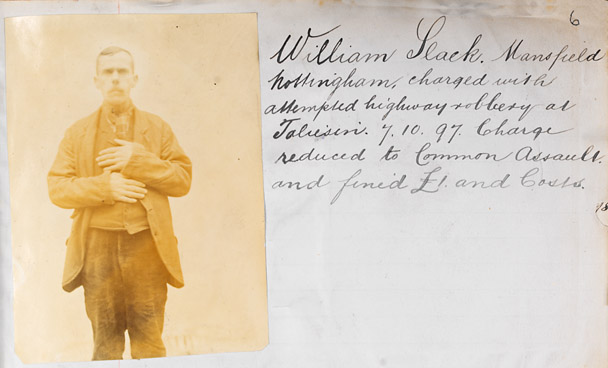 6
William Slack. Mansfield
Nottingham, charged with
attempted highway robbery at
Taliesin. 7. 10. 97. Charge
reduced to Common Assault.
and fined £1. and Costs.